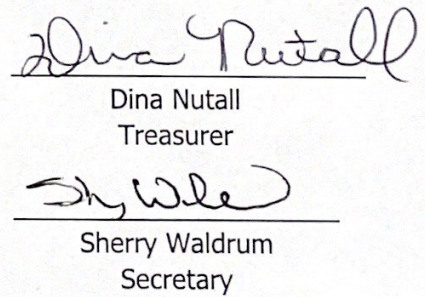 Dina Nutall
Dina Nutall
Treasurer
Sherry Waldrum
Secretary